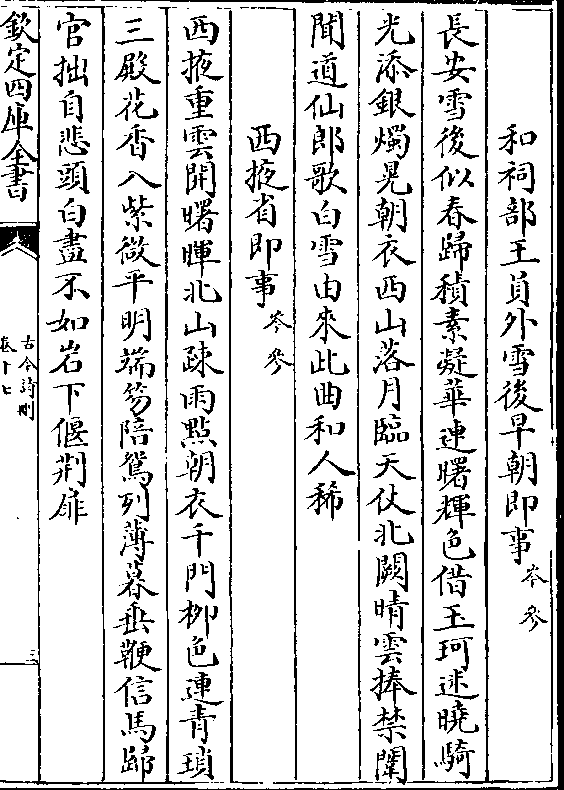 和祠部王員外雪後早朝即事岑參
長安雪後似春歸積素凝華連曙輝色借玉珂迷曉騎
光添銀燭晃朝衣西山落月臨天仗北闕晴雲捧禁闈
聞道仙郎歌白雪由來此曲和人稀
西掖省即事岑參
西掖重雲開曙暉北山疎雨點朝衣千門栁色連青瑣
三殿花香入紫微平明端笏陪鵷列薄暮垂鞭信馬歸
官拙自悲頭白盡不如岩下偃荆扉
欽定四庫全書
古今詩刪
卷十七
三